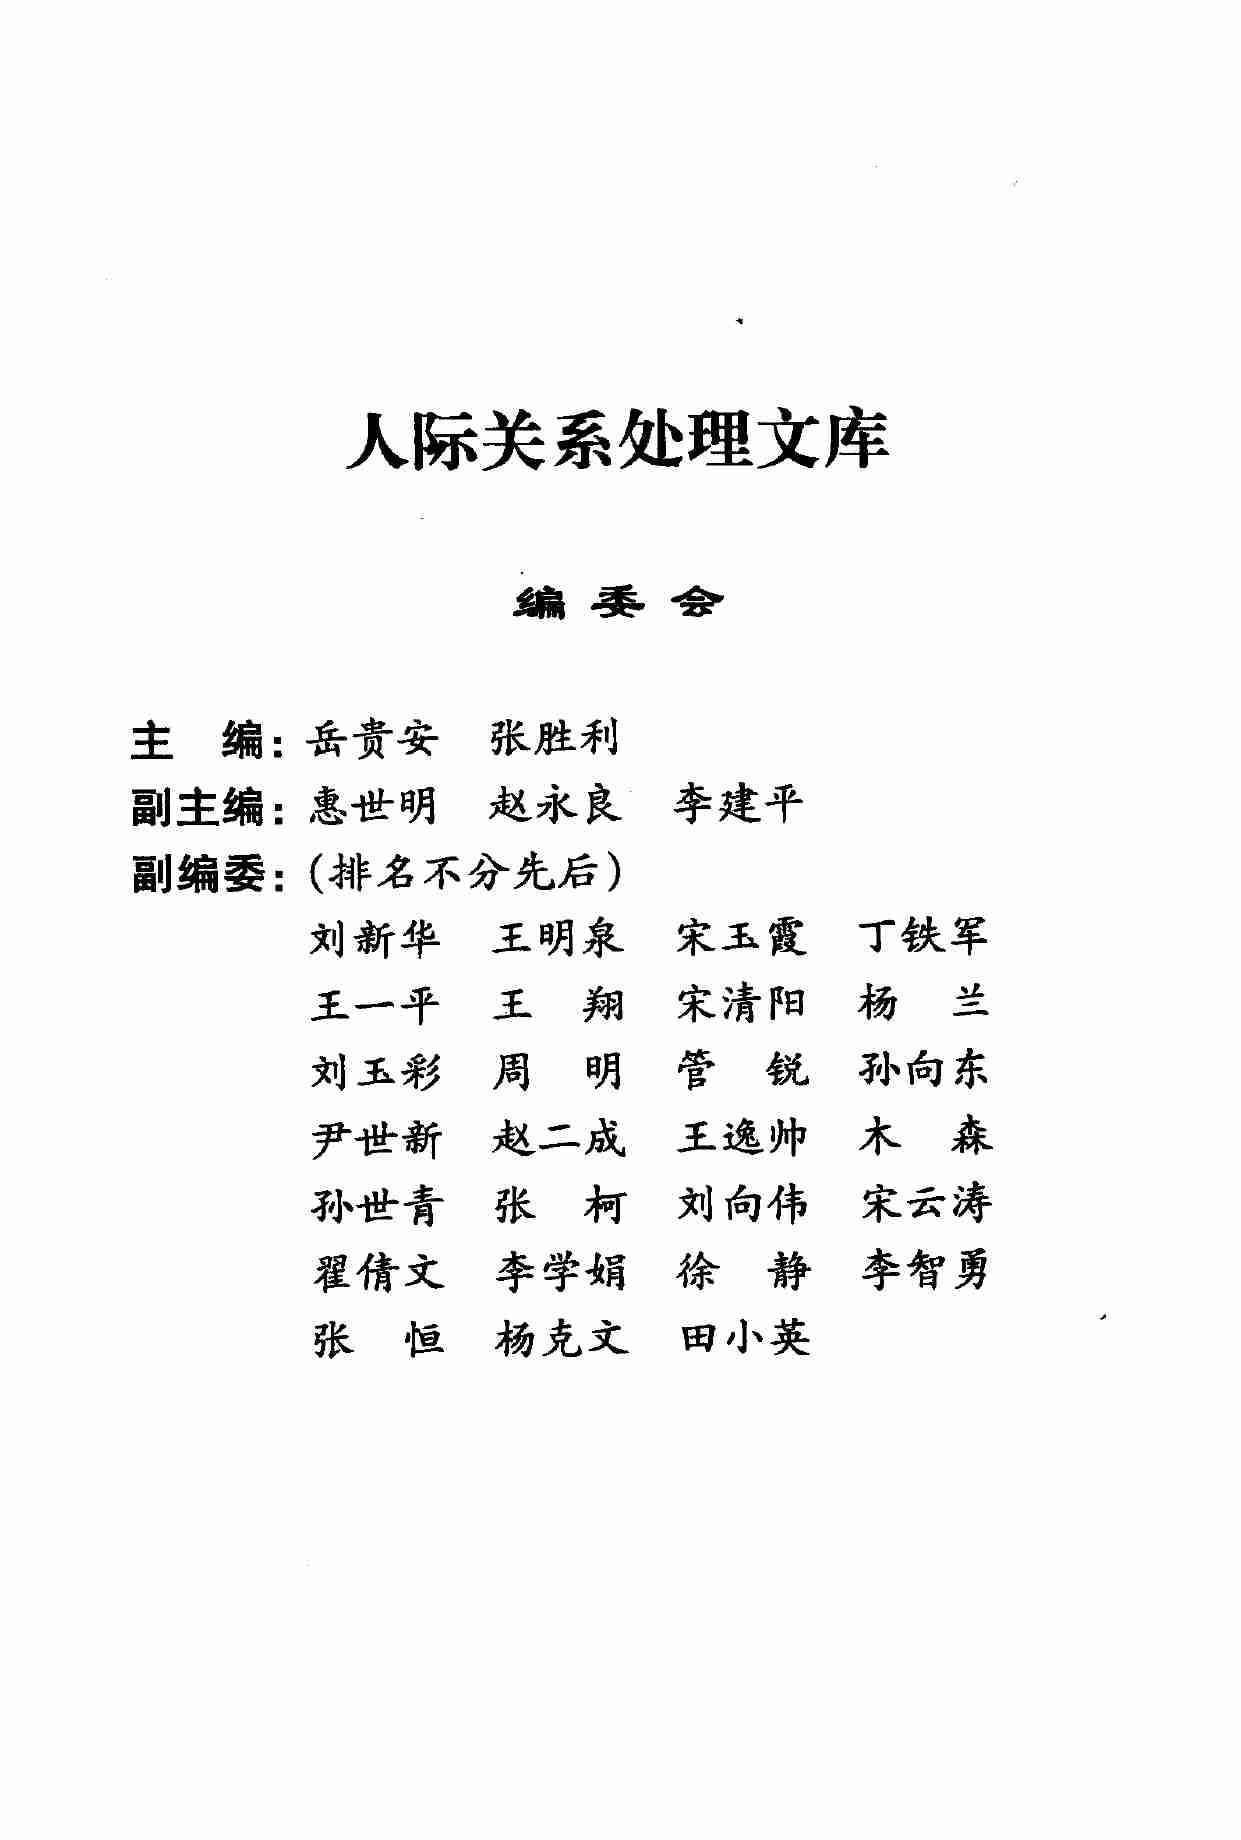 人际关系处理文库
编 委 会
主　编：岳贵安　张胜利
副主编：惠世明　赵永良　李建平
副编委：(排名不分先后)
刘新华　王明泉　宋玉霞　丁铁军
王一平　王　翔　宋清阳　杨　兰
刘玉彩　周　明　管　锐　孙向东
尹世新　赵二成　王逸帅　木　森
孙世青　张　柯　刘向伟　宋云涛
翟倩文　李学娟　徐　静　李智勇
张　恒　杨克文　田小英